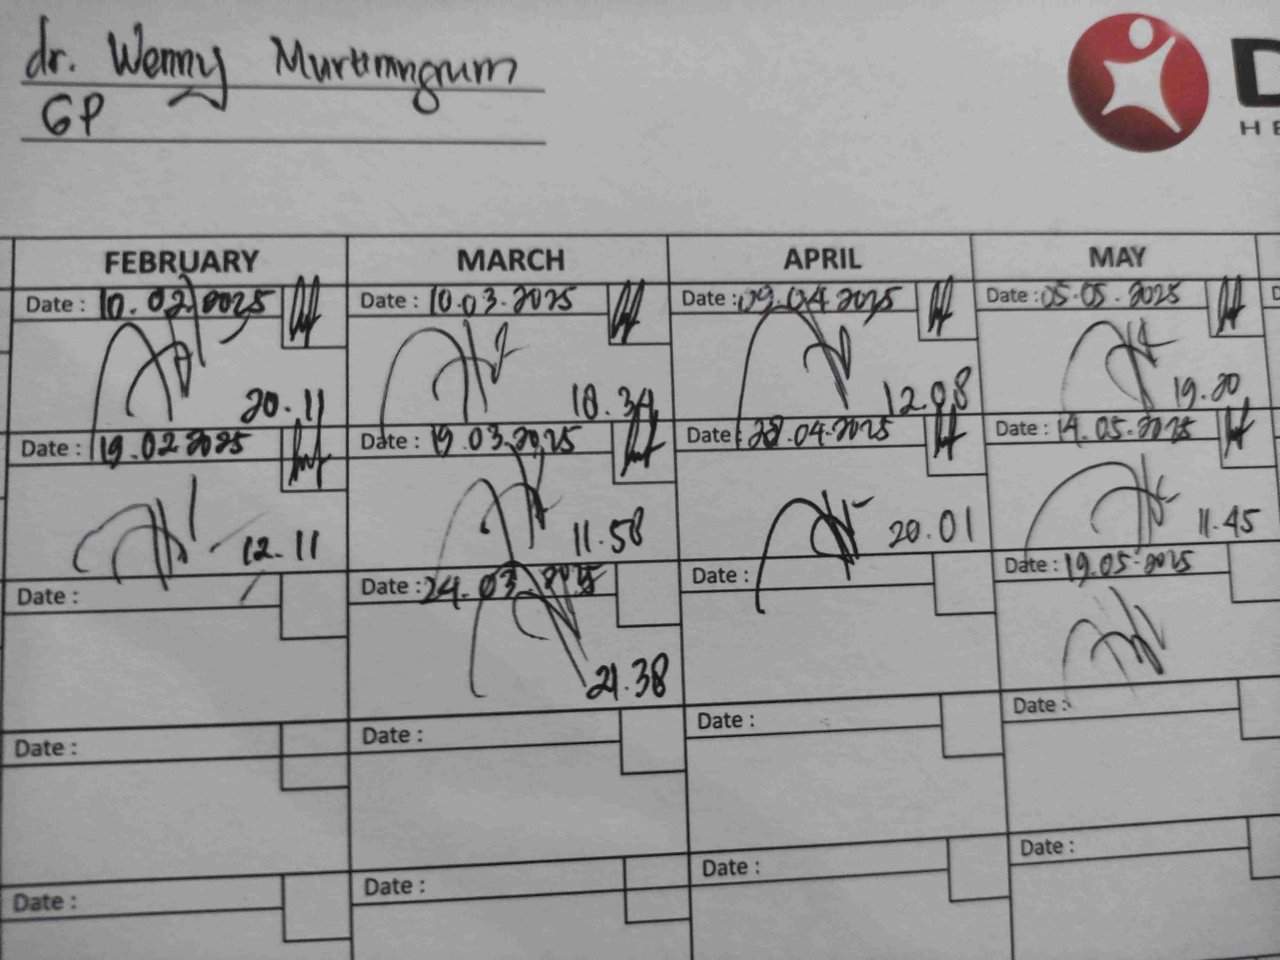 dr. Wenny Murtiningrum
GP
D
HE
FEBRUARY MARCH APRIL MAY
Date : 10.02.2025 Date : 10.03.2025 Date : 09.04.2025 Date : 05.05.2025
20.11 18.34 12.08 19.20
Date : 19.02.2025 Date : 19.03.2025 Date : 28.04.2025 Date : 14.05.2025
12.11 11.58 20.01 11.45
Date : Date : 24.03.2025 Date : Date : 19.05.2025
21.38
Date : Date : Date : Date :
Date : Date : Date : Date :